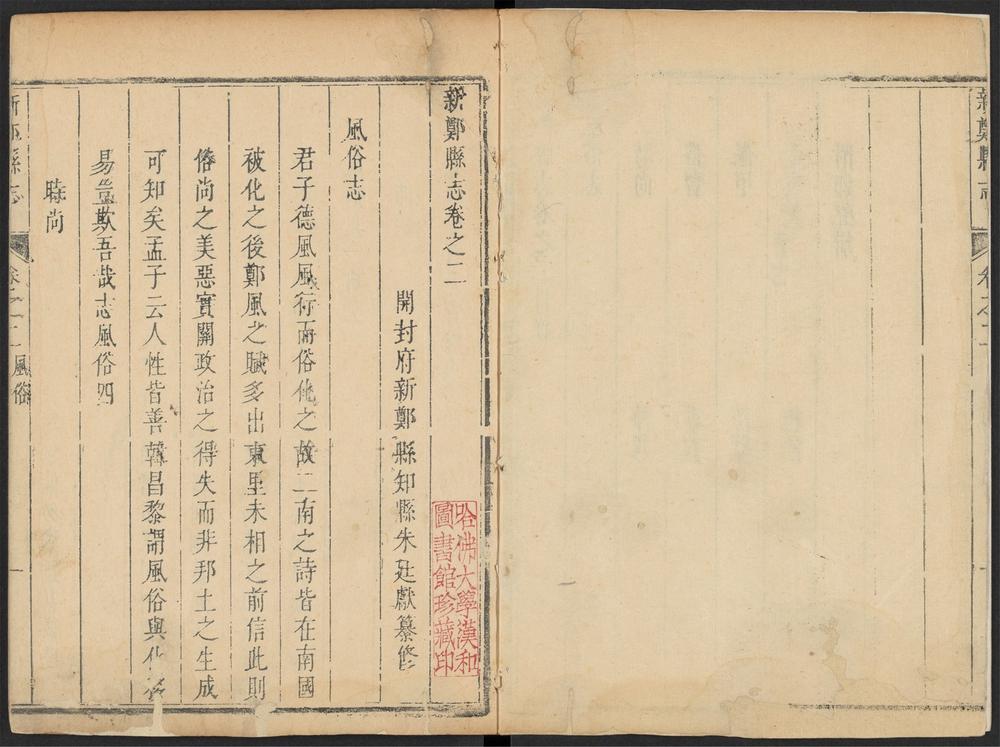 新鄭縣志
卷之二
新鄭縣志卷之二
開封府新鄭縣知縣朱廷獻纂修
哈佛大學漢和
圖書館珍藏印
風俗志
君子德風風行而俗化之故二南之詩皆在南國
被化之後鄭風之賦多出東里未相之前信此則
俗尚之美惡實關政治之得失而非邦土之生成
可知矣孟子云人性皆善韓昌黎謂風俗與化
易豈欺吾哉志風俗四
時尚
新鄭縣志
卷之二 風俗
一